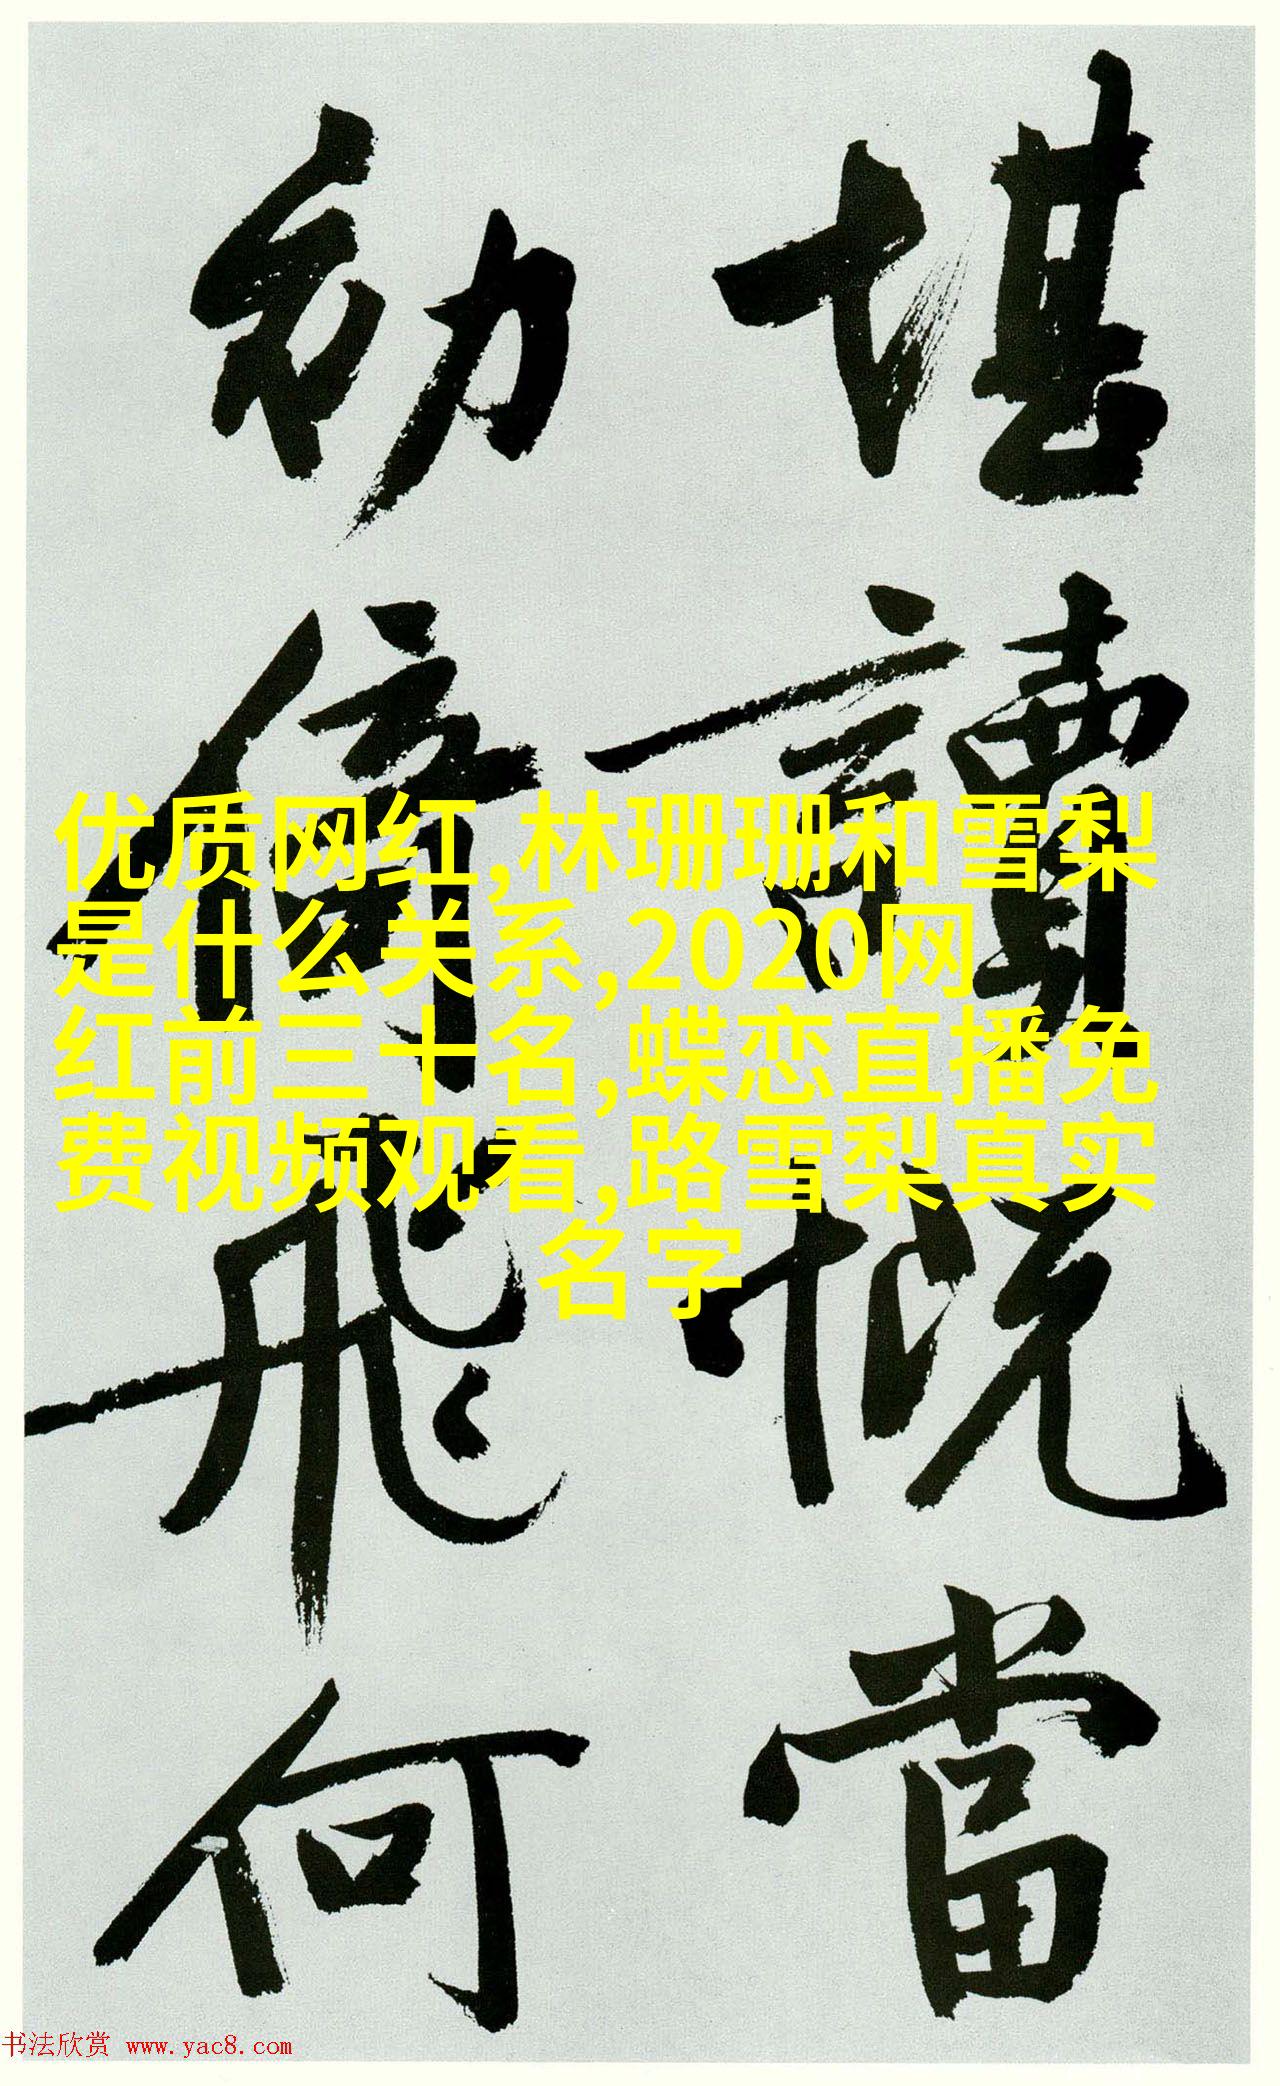 堪讀慨當
倚飛何
优质网红,林珊珊和雪梨
是什么关系,2020网
红前三十名,蝶恋直播免
费视频观看,路雪梨真实
名字
书法欣赏 www.yac8.com